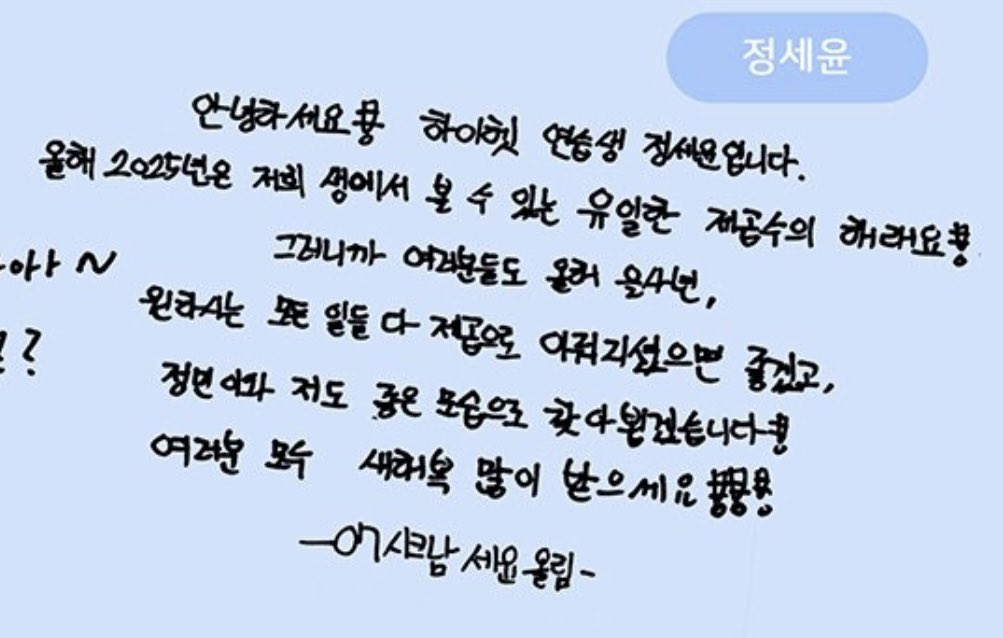 정세윤
안녕하세요!! 하이헷 연습생 정세윤입니다.
올해 2025년은 저희 생에서 볼 수 있는 유일한 제곱수의 해래요!!
아아~
그러니까 여러분들도 올해 을사년,
원하시는 모든 일들 다 제곱으로 이뤄지셨으면 좋겠고,
?
정면이와 저도 좋은 모습으로 찾아뵙겠습니다!!
여러분 모두 새해복 많이 받으세요!!!!!!
세윤 올림-